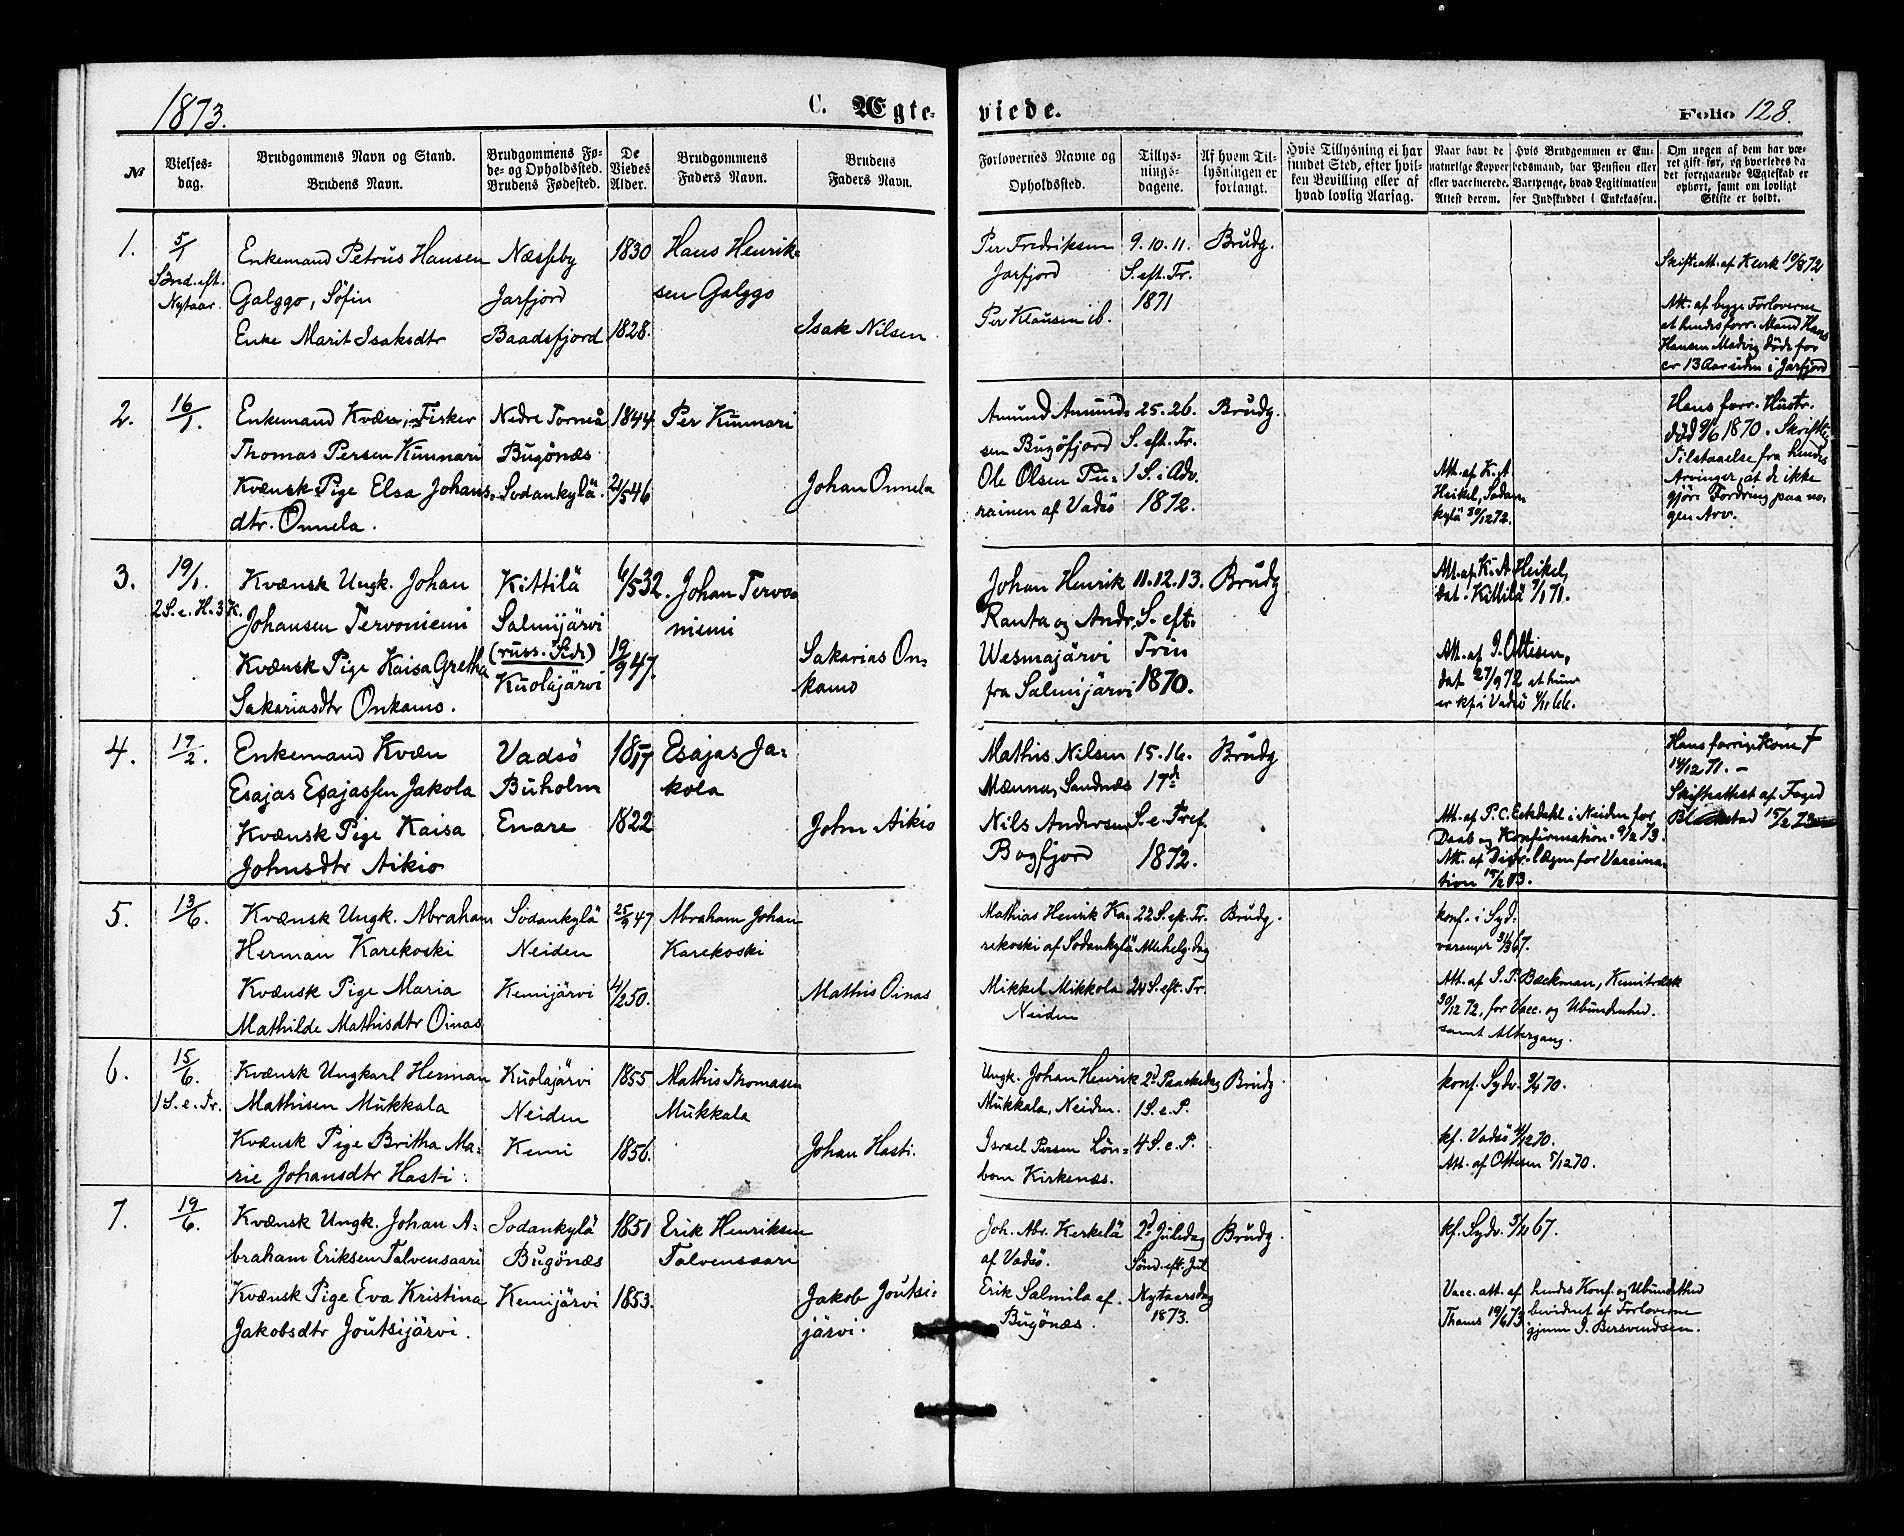 1873.
C. Ægte-
viede.
Folio 128.
No
Vielses-
dag.
Brudgommens Navn og Stand.
Brudens Navn.
Brudgommens Fø-
de- og Opholdssted.
Brudens Fødested.
De
Viedes
Alder.
Brudgommens
Faders Navn.
Brudens
Faders Navn.
Forlovernes Navne og
Opholdssted.
Tillys-
nings-
dagene.
Af hvem Til-
lysningen er
forlangt.
Hvis Tillysning ei har
fundet Sted, efter hvil-
ken Bevilling eller af
hvad lovlig Aarsag.
Naar havt de
naturlige Kopper
eller vaccinerede.
Attest derom.
Hvis Brudgommen er Em-
bedsmand, har Pension eller
Vartpenge, hvad Legitimation
for Indskuddet i Enkekassen.
Om nogen af dem har væ-
ret gift før, og hvorledes da
det foregaaende Ægteskab er
ophørt, samt om lovligt
Skifte er holdt.
1.
5/1
Sønd. eft.
Nytaar.
Enkemand Petrus Hansen
Galggo, Søfin
Enke Marit Isaksdtr
Næsseby
Jarfjord
Baadsfjord
1830
1828.
Hans Henrik-
sen Galggo
Isak Nilsen
Per Fredriksen
Jarfjord
Per Klausen ib.
9. 10. 11.
S. eft. Tr.
1871
Brudg.
Skifteatt. af Klerk 10/8 72
Att. af begge Forloverne
at hendes forr. Mand Hans
Hansen Madvig døde for
er 13 Aar siden i Jarfjord
2.
16/1.
Enkemand Kvæn, Fisker
Thomas Persen Kunnari
Kvænsk Pige Elsa Johans-
dtr. Onnela.
Nedre Torneå
Bugönæs
Sodankylä.
1844
21/5 46
Per Kunnari
Johan Onnela
Amund Amund-
sen Bugöfjord
Ole Olsen Pu-
rainen af Vadsö
25. 26.
S. eft. Tr.
1 S. i Adv.
1872.
Brudg.
Att. af K. A.
Heikel, Sodan-
kylä 30/12 72.
Hans forr. Hustr.
død 9/6 1870. Skriftlig
Tilstaaelse fra hendes
Arvinger, at de ikke
gjöre Fordring paa no-
gen Arv.
3.
19/1.
2 S. e. H. 3 K.
Kvænsk Ungk. Johan
Johansen Tervoniemi
Kvænsk Pige Kaisa Gretha
Sakariasdtr Onkamo.
Kittilä
Salmijärvi
(russ. Side)
Kuolajärvi
6/5 32.
19/9 47.
Johan Tervo-
niemi
Sakarias On-
kamo
Johan Henrik
Ranta og Andr.
Wesmajärvi
fra Salmijärvi
11. 12. 13.
S. eft.
Trin
1870.
Brudg
Att. af K. A. Heikel,
dat. Kittilä 7/1 71.
Att. af J. Ottesen,
dat 27/9 72 at hun
er kf. i Vadsö 4/11 66.
4.
17/2.
Enkemand Kvæn
Esajas Esajassen Jakola
Kvænsk Pige Kaisa
Johnsdtr Aikio
Vadsö
Buholm
Enare
1817
1822
Esajas Ja-
kola
John Aikio
Mathis Nilsen
Mænna, Sandnæs
Nils Andersen
Bogfjord
15. 16.
17de
S. e. Tref.
1872.
Brudg
Att. af P. C. Eekdahl i Neiden for
Daab og Konfirmation. 9/2 73.
Att. af Distr. lægen for Vaccina-
tion 15/2 73.
Hans forrige Kone †
14/12 71. –
Skifteattest af Foged
15/2 73
5.
13/6.
Kvænsk Ungk. Abraham
Herman Karekoski
Kvænsk Pige Maria
Mathilde Mathisdtr Oinas
Sodankylä
Neiden
Kemijärvi
25/9 47
4/2 50.
Abraham Johan
Karekoski
Mathis Oinas
Mathias Henrik Ka-
rekoski af Sodankylä
Mikkel Mikkola
Neiden
22 S. ep. Tr.
Allehelg. dag
24 S. eft. Tr.
Brudg.
konf. i Syd-
varanger 31/3 67.
Att. af J. P. Backman, Kemiträsk
30/12 72, for Vacc. og Ubundenhed.
samt Altergang.
6.
15/6.
1 S. e. Tr.
Kvænsk Ungkarl Herman
Mathisen Mukkala
Kvænsk Pige Britha Ma-
rie Johansdtr Hasti.
Kuolajärvi
Neiden
Kemi
1855
1856.
Mathis Thomasen
Mukkala
Johan Hasti.
Ungk. Johan Henrik
Mukkala, Neiden.
Israel Persen Lön-
bom Kirkenæs.
2d Paaskedag
1 S. e. P.
4 S. e. P.
Brudg.
konf. Sydv. 3/4 70.
kf. Vadsö 4/12 70.
Att. af Ottesen 5/12 70.
7.
19/6.
Kvænsk Ungk. Johan A-
braham Eriksen Talvensaari
Kvænsk Pige Eva Kristina
Jakobsdtr Joutsijärvi.
Sodankylä
Bugönæs
Kemijärvi
1851
1853.
Erik Henriksen
Talvensaari
Jakob Joutsi-
järvi.
Joh. Abr. Kerkelä
af Vadsö.
Erik Salmila af
Bugönæs.
2d Juledag
Sönd. eft. Jul
Nytaarsdag
1873.
Brudg.
kf. Sydv. 3/11 67.
Vacc. att. af
Thams 19/6 73
hendes Konf. og Ubundethed
bevidnet af Forloverne
gjenn J. Bersvendsen.